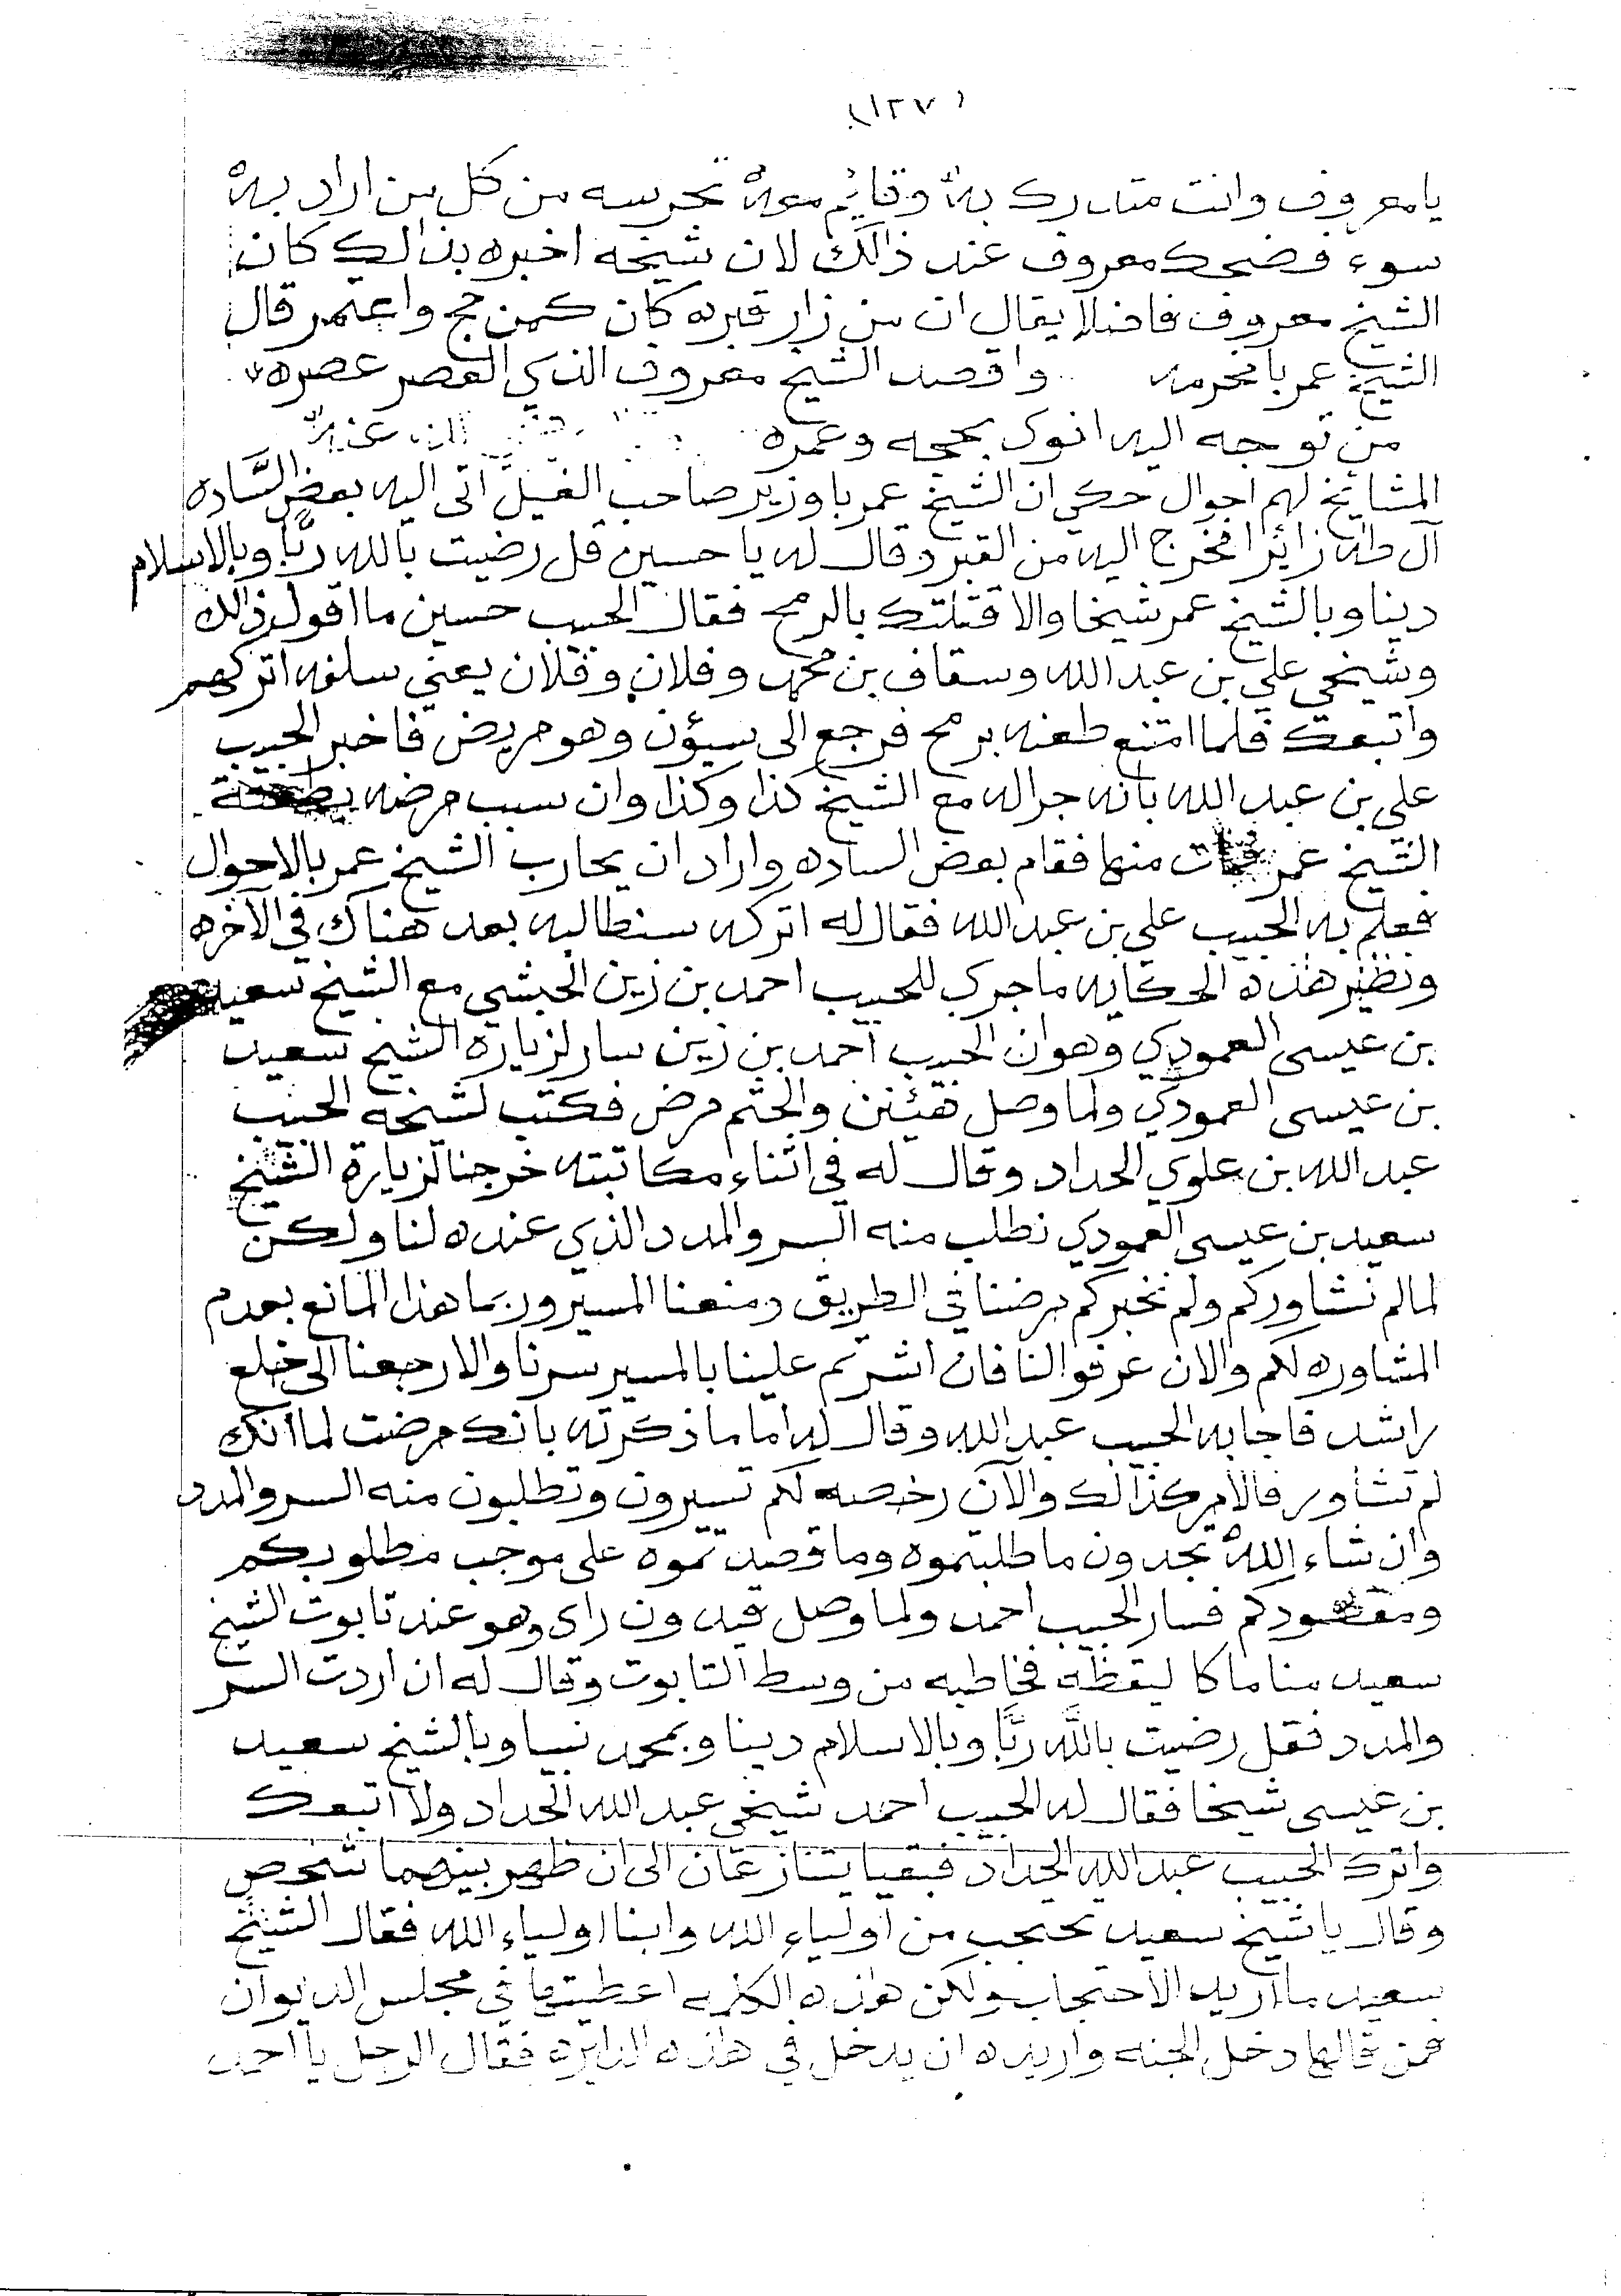 (١٢٧)
يا معروف وانت متدرك به وقايم معه تحرسه من كل من اراد به
سوء فضحك معروف عند ذالك لان شيخه اخبره بذالك كان
الشيخ معروف فاضلا يقال ان من زار قبره كان كمن حج واعتمر قال
الشيخ عمر بامخرمه واقصد الشيخ معروف الذي العصر عصره
من توجه اليه انوى بحجه وعمره
المشايخ لهم احوال حكي ان الشيخ عمر باوزير صاحب الغيل اتى اليه بعض السّاده
آل طه زائرا فخرج اليه من القبر وقال له يا حسين قل رضيت بالله ربًّا وبالاسلام
دينا وبالشيخ عمر شيخا والا قتلتك بالرمح فقال الحبيب حسين ما اقول ذالك
وشيخي علي بن عبد الله وسقاف بن محمد وفلان وفلان يعني سلفه اتركهم
واتبعك فلما امتنع طعنه برمح فرجع الى سيؤن وهو مريض فاخبر الحبيب
علي بن عبد الله بانه جرا له مع الشيخ كذا وكذا وان سبب مرضه بطعنة
الشيخ عمر فمات منها فقام بعض الساده واراد ان يحارب الشيخ عمر بالاحوال
فعلم به الحبيب علي بن عبد الله فقال له اتركه سنطالبه بعد هناك في الآخره
ونظير هذه الحكايه ما جرى للحبيب احمد بن زين الحبشي مع الشيخ سعيد
بن عيسى العمودي وهو ان الحبيب احمد بن زين سار لزيارة الشيخ سعيد
بن عيسى العمودي ولما وصل هينن والجثم مرض فكتب لشيخه الحبيب
عبد الله بن علوي الحداد وقال له في اثناء مكاتبته خرجنا لزيارة الشيخ
سعيد بن عيسى العمودي نطلب منه السر والمدد الذي عنده لنا ولكن
لما لم نشاوركم ولم نخبركم مرضنا في الطريق ومنعنا المسير وربما هذا المانع بعدم
المشاوره لكم والان عرفوا لنا فان اشرتم علينا بالمسير سرنا والا رجعنا الى خلع
راشد فاجابه الحبيب عبد الله وقال له اما ما ذكرته بانك مرضت لما انك
لم تشاور فالامر كذالك والآن رخصه لكم تسيرون وتطلبون منه السر والمدد
وان شاء الله تجدون ما طلبتموه وما قصدتموه على موجب مطلوبكم
ومقصودكم فسار الحبيب احمد ولما وصل قيدون راى وهو عند تابوت الشيخ
سعيد مناما كا ليقظه فخاطبه من وسط التابوت وقال له ان اردت السر
والمدد فقل رضيت بالله ربًّا وبالاسلام دينا وبمحمد نبيا وبالشيخ سعيد
بن عيسى شيخا فقال له الحبيب احمد شيخي عبد الله الحداد ولا اتبعك
واترك الحبيب عبد الله الحداد فبقيا يتنازعان الى ان ظهر بينهما شخص
وقال يا شيخ سعيد تحتجب من اولياء الله وابنا اولياء الله فقال الشيخ
سعيد ما اريد الاحتجاب ولكن هاذه الكلمه اعطيتها في مجلس الديوان
فمن قالها دخل الجنه واريده ان يدخل في هاذه الدايره فقال الرجل يا احمد